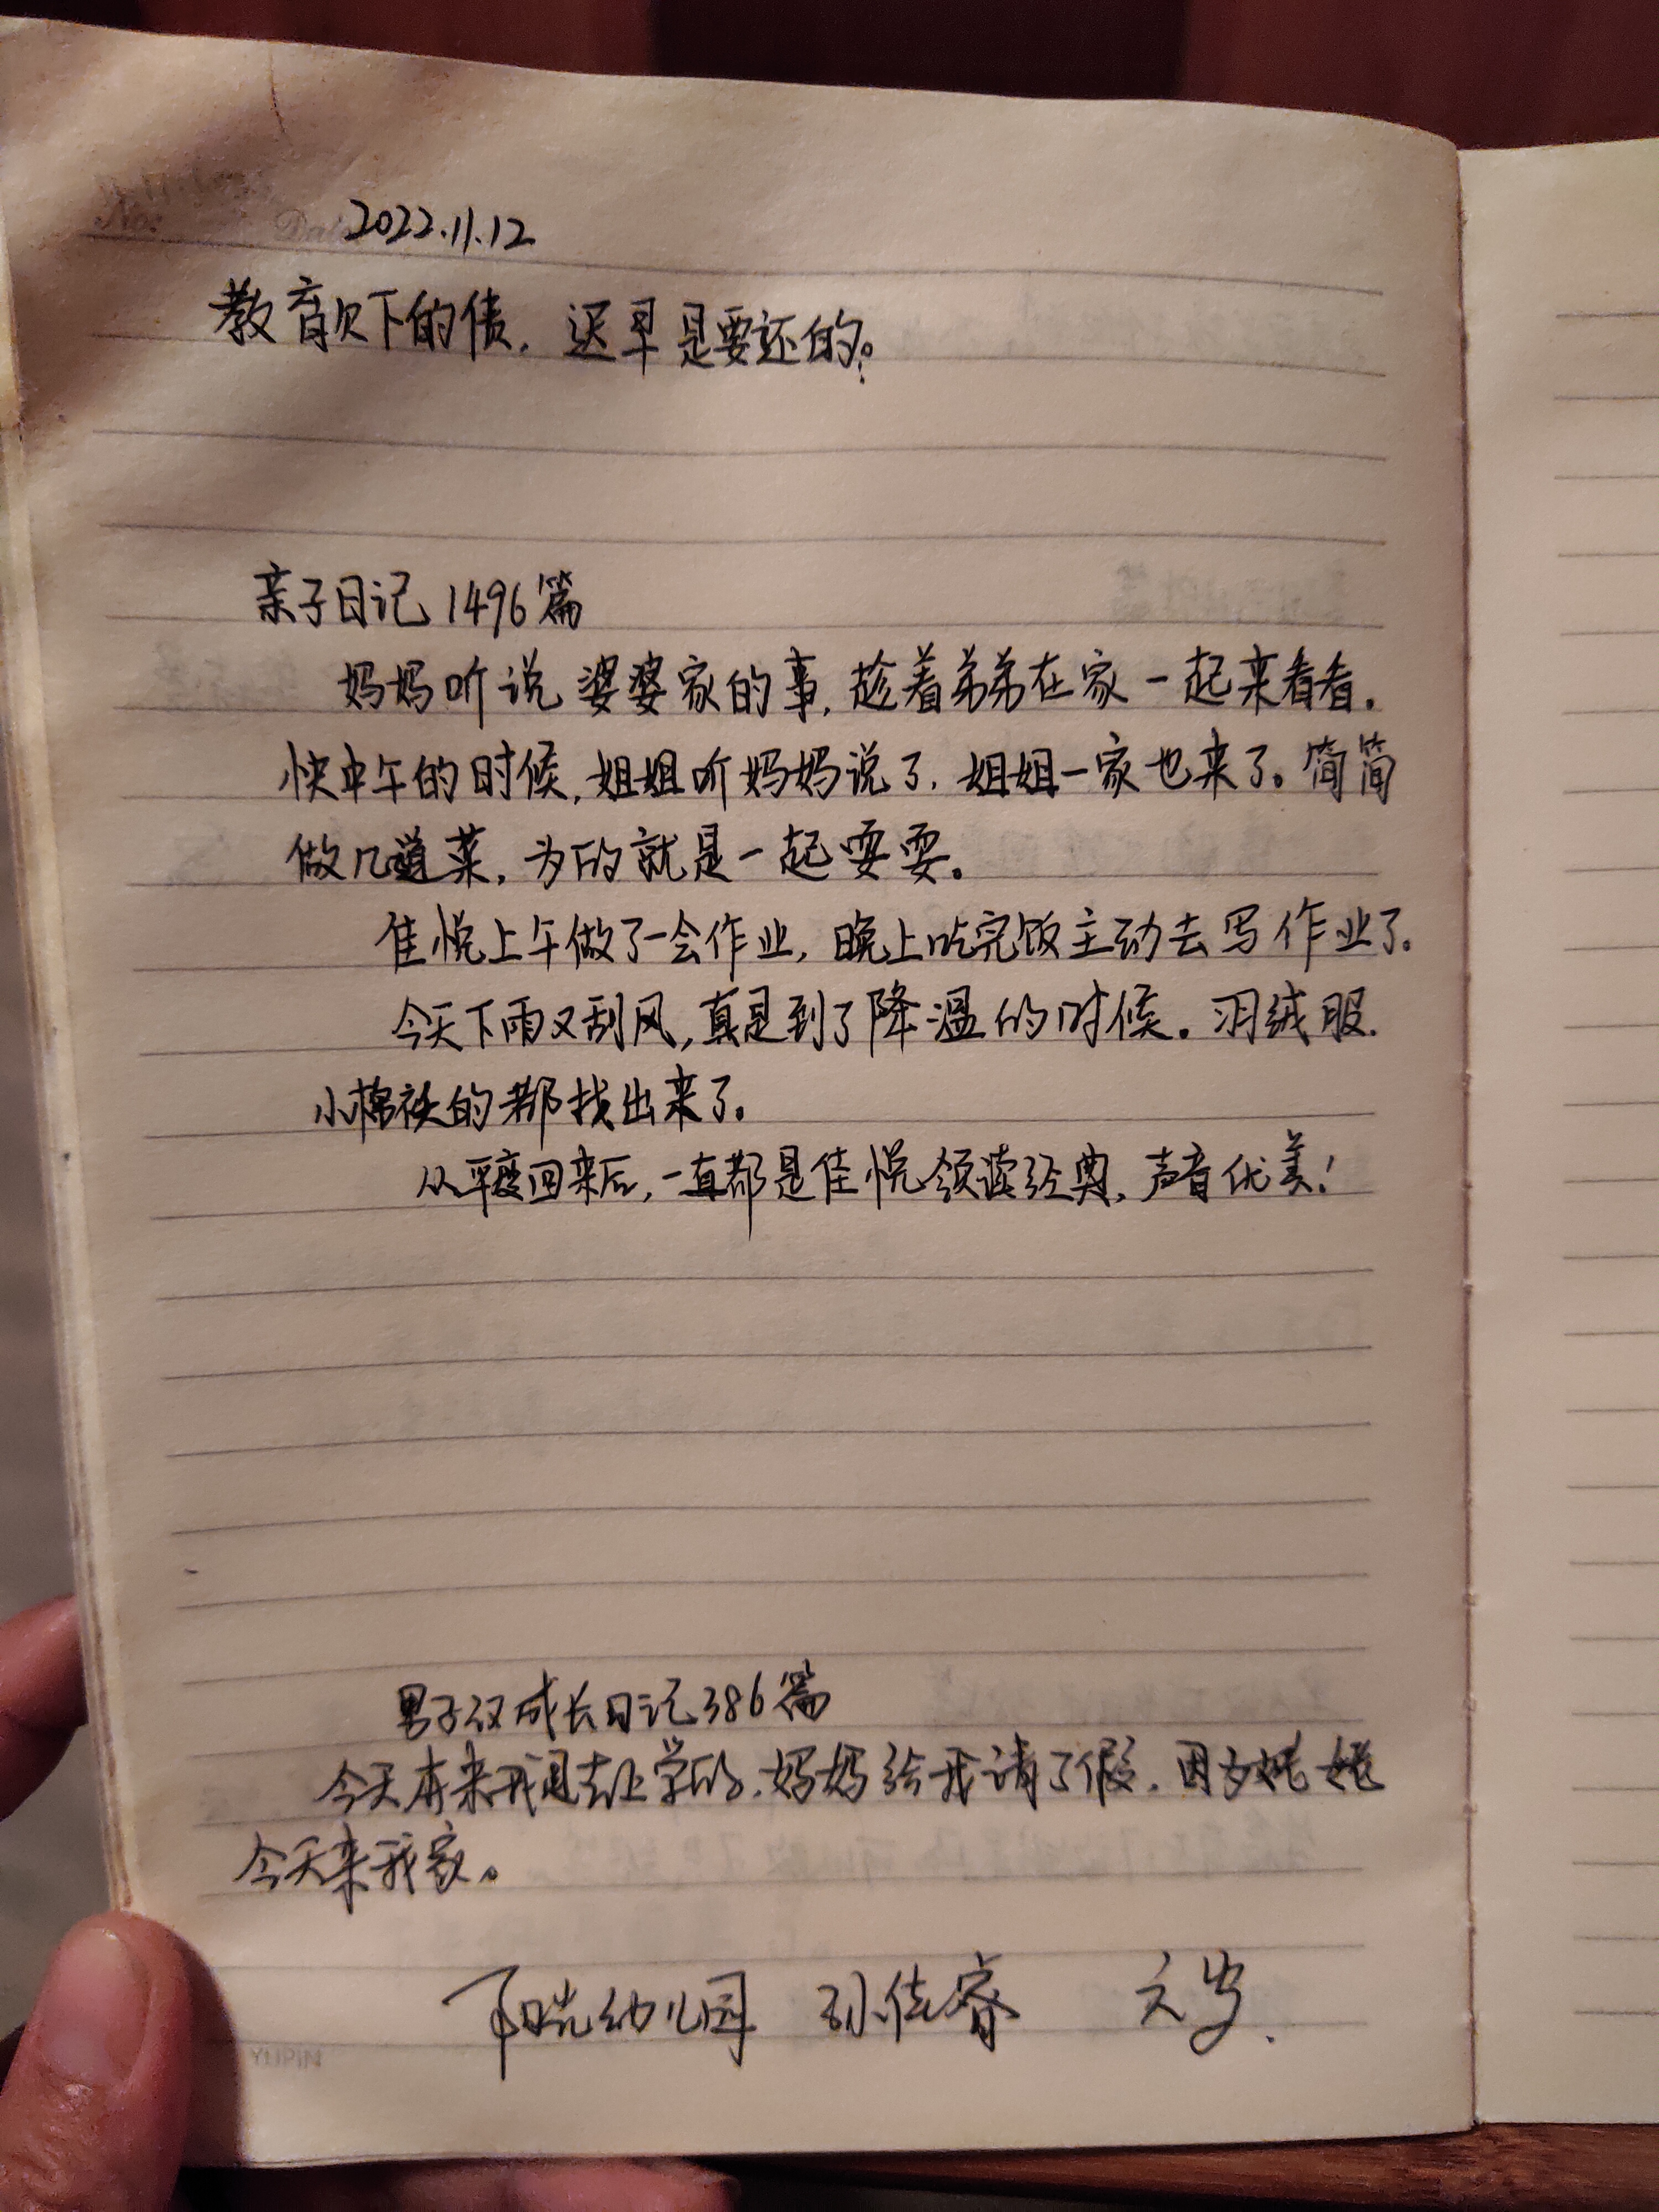 No: Date 2022.11.12
教育欠下的债，迟早是要还的。
亲子日记 1496篇
妈妈听说婆婆家的事，趁着弟弟在家一起来看看。
快中午的时候，姐姐听妈妈说了，姐姐一家也来了。简简
做几道菜，为的就是一起耍耍。
佳悦上午做了一会作业，晚上吃完饭主动去写作业了。
今天下雨又刮风，真是到了降温的时候。羽绒服.
小棉袄的都找出来了。
从平度回来后，一直都是佳悦领读经典，声音优美！
男子汉成长日记386篇
今天本来我是去上学的，妈妈给我请了假，因为姥姥
今天来我家。
幼儿园 孙佳睿